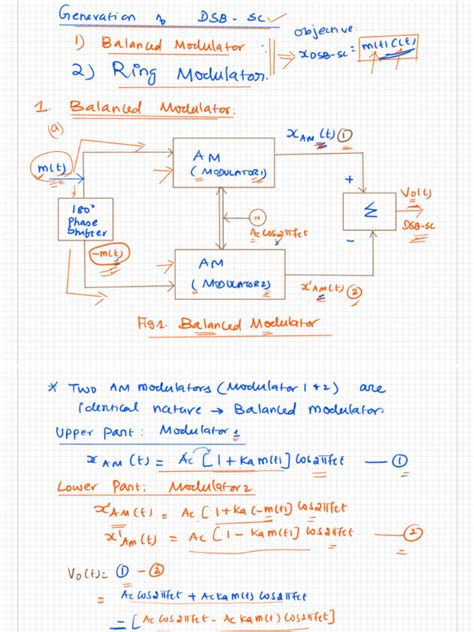 Generation of DSB-SC
1) Balanced Modulator
2) Ring Modulator.
objective:
x_DSB-SC = m(t) C(t)
1. Balanced Modulator.
(a)
m(t)
180°
Phase
Shifter
-m(t)
AM
(MODULATOR 1)
x_AM(t) ①
Ac cos2πfct
AM
(MODULATOR 2)
x'_AM(t) ②
+
Σ
-
Vo(t)
DSB-SC
Fig 1. Balanced Modulator
* Two AM modulators (Modulator 1 & 2) are
identical nature → Balanced modulator.
Upper Part: Modulator 1
x_AM(t) = Ac [1 + Ka m(t)] cos2πfct — ①
Lower Part: Modulator 2
x'_AM(t) = Ac [1 + Ka (-m(t)] cos2πfct
x'_Am(t) = Ac [1 - Ka m(t)] cos2πfct — ②
Vo(t) = ① - ②
= Ac cos2πfct + Ac Ka m(t) cos2πfct
= [Ac cos2πfct - Ac Ka m(t) cos2πfct]